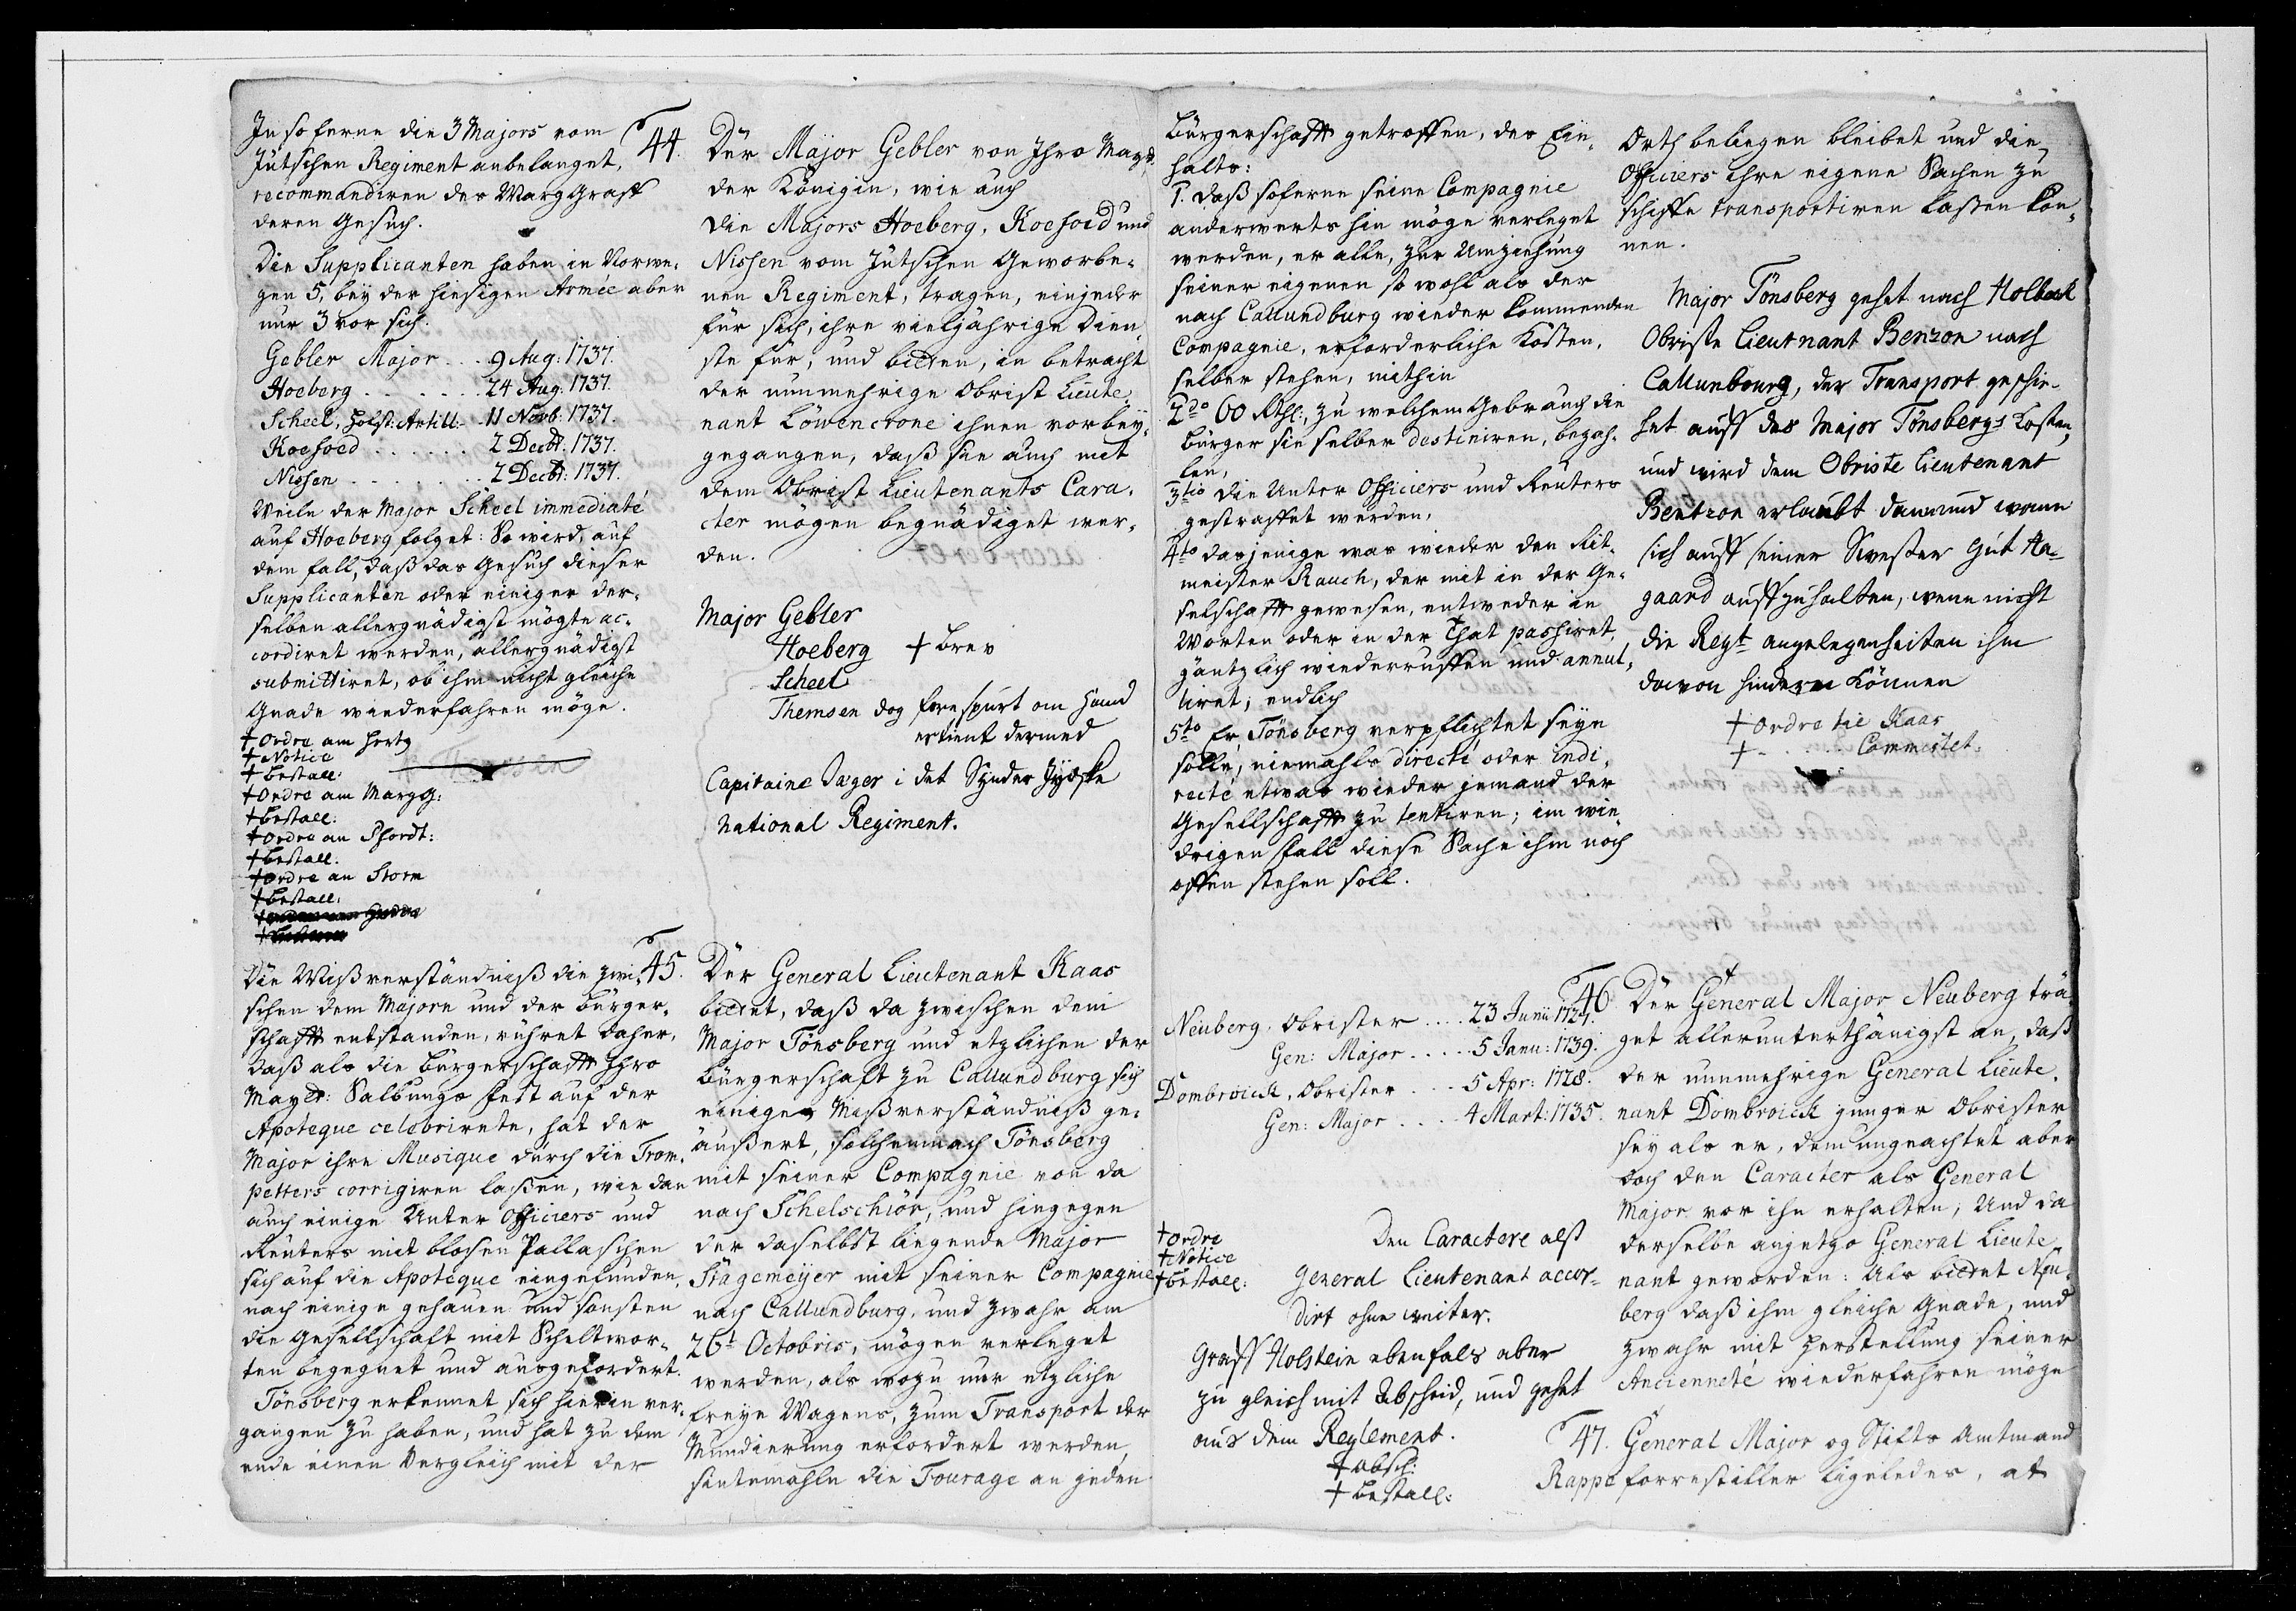 In so ferne die 3 Majors vom
Jütschen Regiment anbelanget,
recommandiren der MargGraff
deren Gesuch.
Die Supplicanten haben in Norwe-
gen 5, bey der hiesigen Armée aber
nur 3 vor sich.
Gebler Major . . . 9 Aug: 1737.
Hoeberg . . . . . . . 24 Aug: 1737.
Scheel, Holst: Artill: - 11 Novb: 1737.
Koefoed . . . . . . 2 Decbr: 1737.
Nissen . . . . . . . 2 Decbr: 1737.
Weile der Major Scheel immediaté
auf Hoeberg folget: So wird, auf
dem fall, daß das Gesuch dieser
Supplicanten oder einiger der-
selben allergnädigst mögte ac-
cordiret werden, allergnädigst
submittiret, ob ihm nicht gleiche
Gnade wiederfahren möge.
† Ordre am Hertz
† Notice
† bestall:
† Ordre am Margg:
† bestall:
† Ordre an Pfordt:
† bestall.
† Ordre an Storm
† bestall.
44.
Der Major Gebler von Ihro Mayt:
der Königin, wie auch
die Majors Hoeberg, Koefoed und
Nissen vom Jütschen Geworbe-
nen Regiment, tragen, einjeder
für sich, ihre vieljährige Dien-
ste für, und bitten, in betracht
der nunmehrige Obrist Lieute-
nant Löwencrone ihnen vorbey-
gegangen, daß sie auch mit
dem Obrist Lieutenants Cara-
cter mögen begnädiget wer-
den.
Major Gebler
Hoeberg † brev
Scheel
Themsen dog forespurt om hand
ertient dermed
Capitaine Jæger i det Synder Jydske
National Regiment.
Die Mißverständniß die zwi-
schen dem Majorn und der Bürger-
schafft entstanden, rühret daher,
daß als die Bürgerschafft Ihro
Maytt: Salbungs Fest auf der
Apoteque celebrirete, hat der
Major ihre Musique durch die Trom-
petters corrigiren laßen, wie dan
auch einige Unter Officiers und
Reuters mit blosen Pallaschen
sich auf die Apoteque eingefunden,
nach einige gehauen und sonsten
die Gesellschaft mit Scheltwor-
ten begegnet und ausgefordert.
Tönsberg erkennet sich hierin ver-
gangen zu haben, und hat zu dem
ende einen Vergleich mit der
45.
Der General Lieutenant Kaas
bittet, daß da zwischen dem
Major Tönsberg und etzlichen der
Bürgerschaft zu Callundburg sich
einiger Mißverständniß ge-
äußert, solchemnach Tönsberg
mit seiner Compagnie von da
nach Schelschiör, und hingegen
der daselbst liegende Major
Stagemeÿer mit seiner Compagnie
nach Callundburg, und zwahr am
26t Octobris, mögen verleget
werden, als wozu nur etzliche
freÿe Wagens, zum Transport der
Mundierung erfordert werden,
sintemahle die Fourage an jeden
Bürgerschafft getroffen, des Ein-
halts:
1. daß soferne seine Compagnie
anderwerts hin möge verleget
werden, er alle, zur Umziehung
seiner eigenen so wohl als der
nach Callundburg wieder kommenden
Compagnie, erforderliche Kosten,
selber stehen, mithin
2do 60 Rthl:, zu welchem Gebrauch die
Bürger sie selber destiniren, bezah-
len,
3tio die Unter Officiers und Reuters
gestraffet werden,
4to dasjenige was wieder den Rit-
meister Rauch, der mit in der Ge-
selschafft gewesen, entweder in
Worten oder in der That passiret,
gäntzlich wiederruffen und annul-
liret; endlich
5to Er, Tönsberg verpflichtet seyn
solle, niemahls directé oder indi-
recté etwas wieder jemand der
Gesellschafft zu tentiren; im wie-
drigen fall diese Sache ihm noch
offen stehen soll.
Orth beliegen bleibet und die
Officiers ihre eigene Sachen zu
schiffe transportiren laßen kön-
nen.
Major Tönsberg gehet nach Holbeck
Obriste Lieutnant Benzon nach
Callunbourg, der Transport geschie-
het auff des Major Tönsbergs Kosten,
und wird dem Obriste Lieutenant
Bentzon erlaubt dann und wann
sich auff seiner Swester Gut Aa-
gaard auffzuhalten, wenn nicht
die Regt angelegenheiten ihm
davon hindern können
† Ordre til Kaas
† - . . . . Commistet.
Neuberg, Obrister . . . . 23 Junii 1727.
Gen: Major . . . . . 5 Janu: 1739.
Dombroick, Obrister . . . 5 Apr: 1728.
Gen: Major . . . . 4 Mart: 1735.
† Ordre
† Notice
† bestall:
Den Caractere alß
General Lieutenant accor-
dirt ohne weiter.
Graff Holstein ebenfals aber
zu gleich mit Abscheid, und gehet
aus dem Reglement.
† absch:
† bestall:
46
Der General Major Neuberg trä-
get allerunterthänigst an, daß
der nunmehrige General Lieute-
nant Dombroick junger Obrister
sey als er, demungeachtet aber
doch den Caracter als General
Major vor ihn erhalten; Und da
derselbe anjetzo General Lieute-
nant geworden: Als bittet Neu-
berg daß ihm gleiche Gnade, und
zwahr mit herstellung seiner
Ancienneté wiederfahren möge
47. General Major og Stifts Amtmand
Rappe forrestiller ligeledes, at